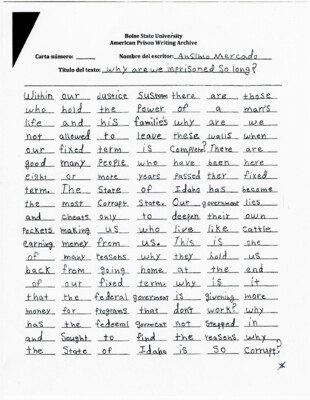 Boise State University
American Prison Writing Archive
Carta número: Nombre del escritor: Anslmo Mercado
Título del texto: why are we imprisoned so long?
Within our Justice Sustrom there are those
who hold the Power of a man's
life and his familie's why are we
not allowed to leave these walls when
our fixed term is Complete? There are
good many People who have been here
eight or more years Passed ther fixed
term. The State of Idaho has become
the most Corrupt State. Our government lies
and cheats only to deepen their own
Pockets making us who live like Cattle
earning money from us. This is one
of many reasons why they hold us
back from going home at the end
of our fixed term. why is it
that the federal goverment is givening more
money for Programs that don't work? why
has the federal goverment not Stepped in
and Sought to find the reasons why
the State of Idaho is so Corrupt?